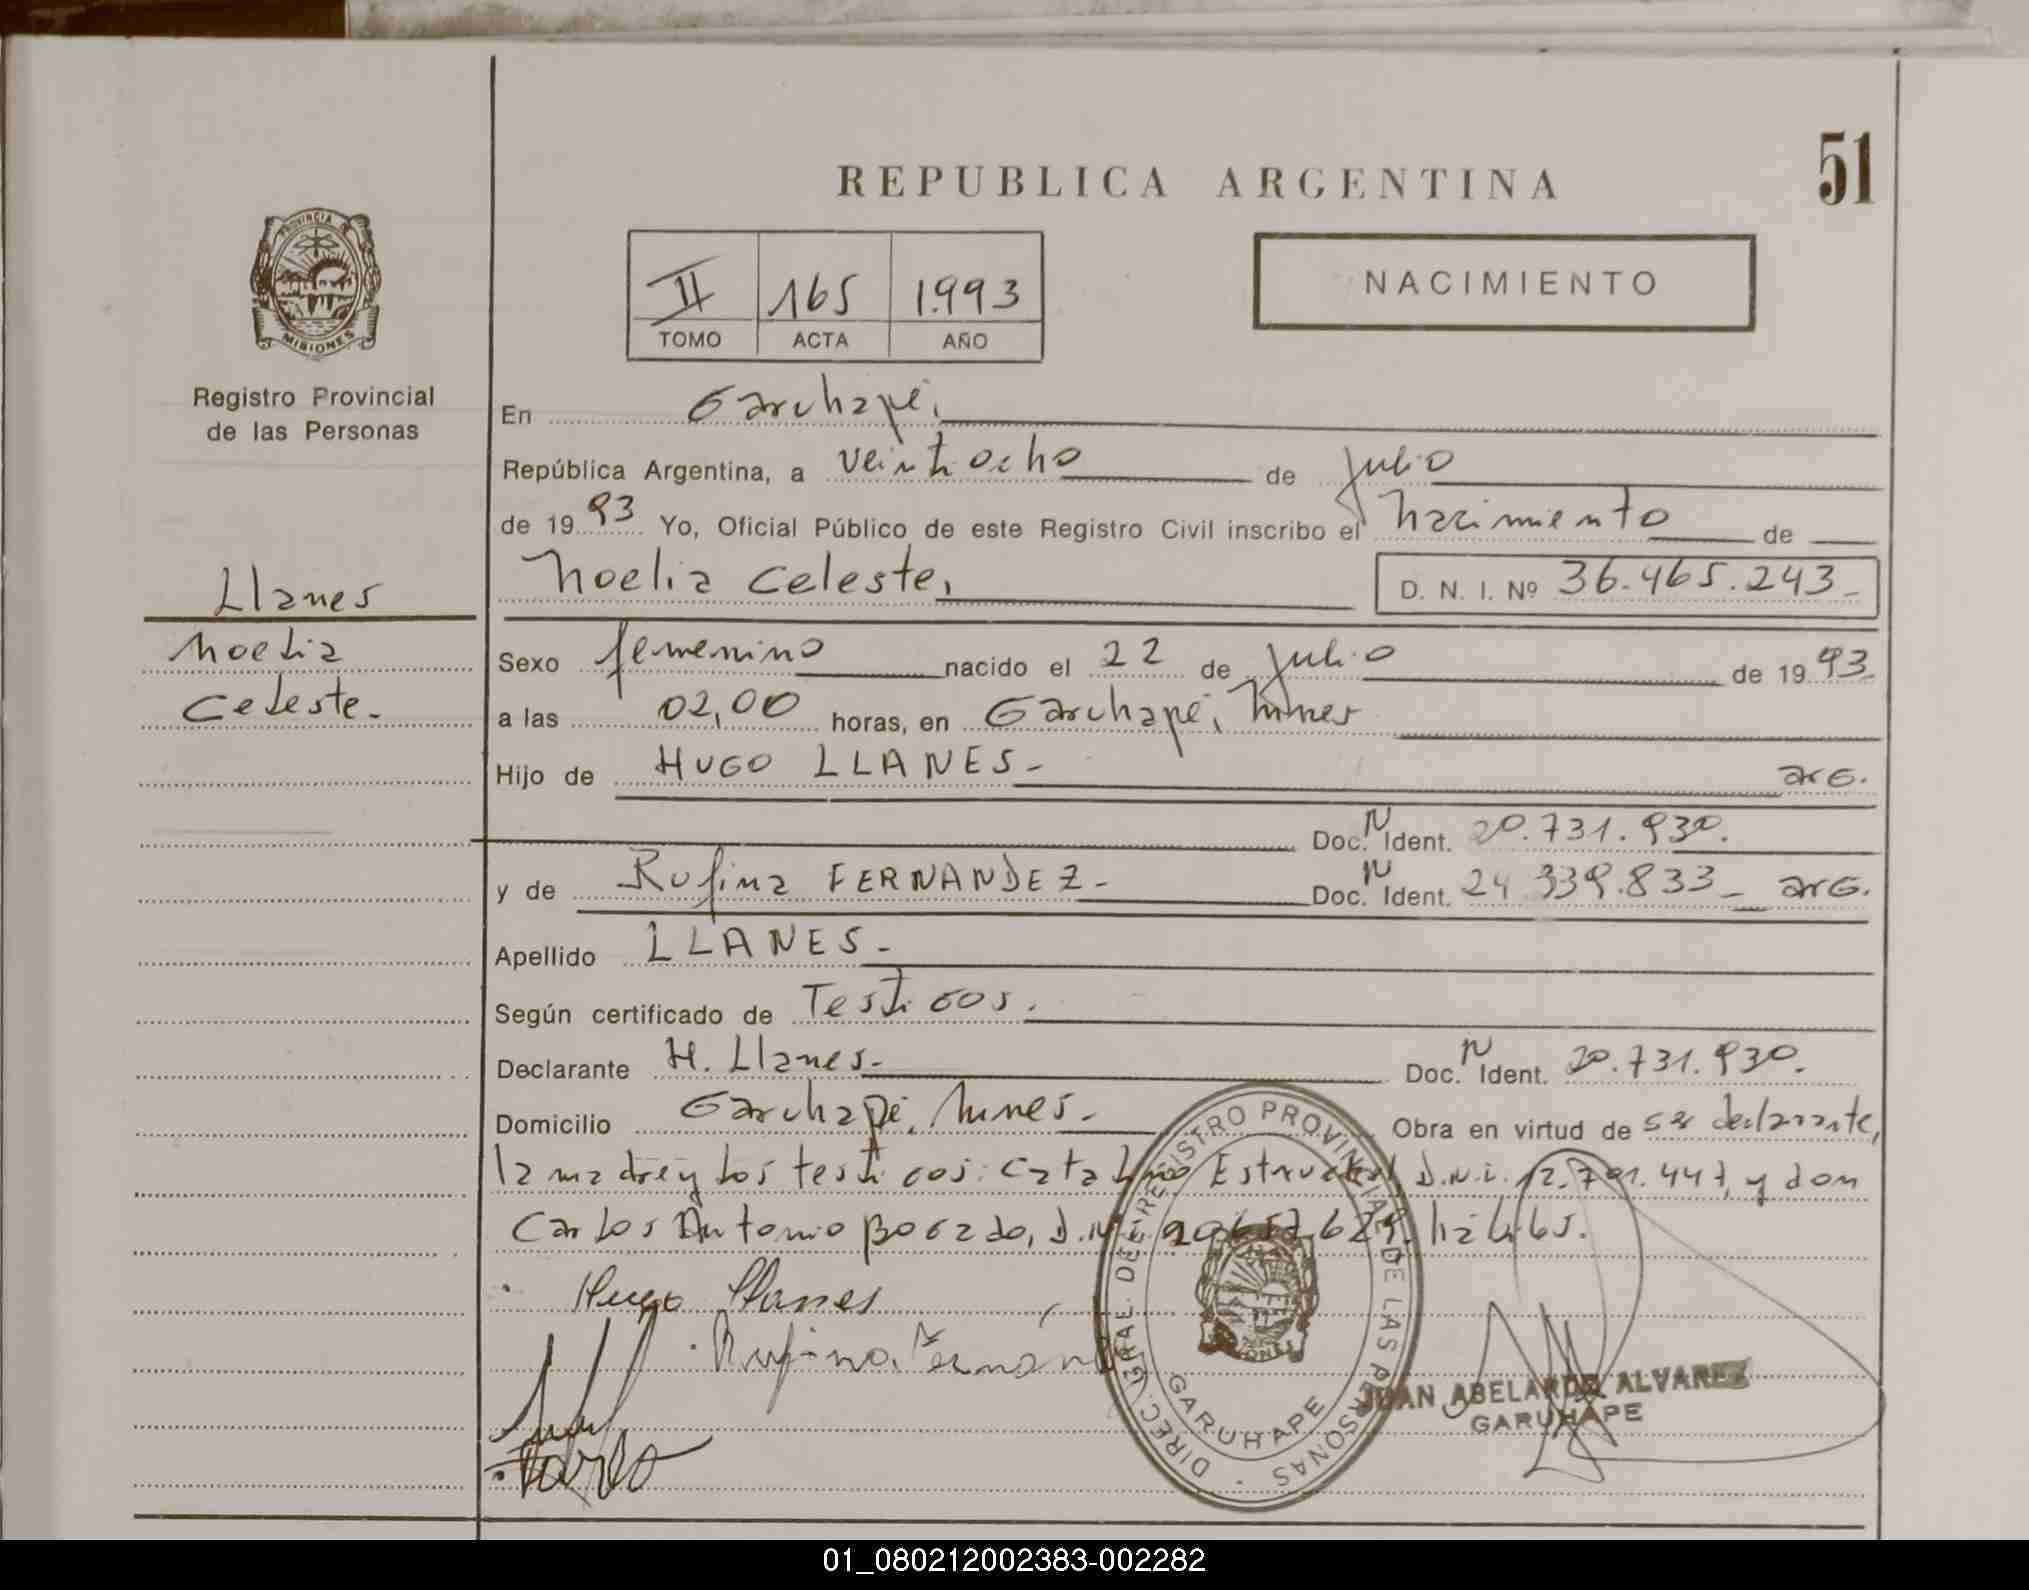 REPUBLICA ARGENTINA
51
PROVINCIA DE
MISIONES
Registro Provincial
de las Personas
II 165 1.993
TOMO ACTA AÑO
NACIMIENTO
En Garuhapé,
República Argentina, a veintiocho de Julio
de 1993 Yo, Oficial Público de este Registro Civil inscribo el Nacimiento de
Noelia Celeste, D. N. I. Nº 36.465.243-
Llanes
Noelia
Celeste-
Sexo femenino nacido el 22 de Julio de 1993-
a las 02,00 horas, en Garuhapé,
Hijo de HUGO LLANES- arg.
Doc. N Ident. 20.731.930.
y de Rufina FERNANDEZ- Doc. N Ident. 24.339.833- arg.
Apellido LLANES-
Según certificado de Testigos.
Declarante H. Llanes- Doc. N Ident. 20.731.930.
Domicilio Garuhapé, Obra en virtud de ser declarante,
la madre y los testigos: Catalino D.N.I. 12.701.447, y don
Carlos Antonio Bogado, D.N.I. hábiles.
Hugo Llanes
Rufina Fernand
DIREC. GRAL. DEL REGISTRO PROVINCIAL DE LAS PERSONAS
GARUHAPE
JUAN ABELARDO ALVAREZ
GARUHAPE
01_080212002383-002282